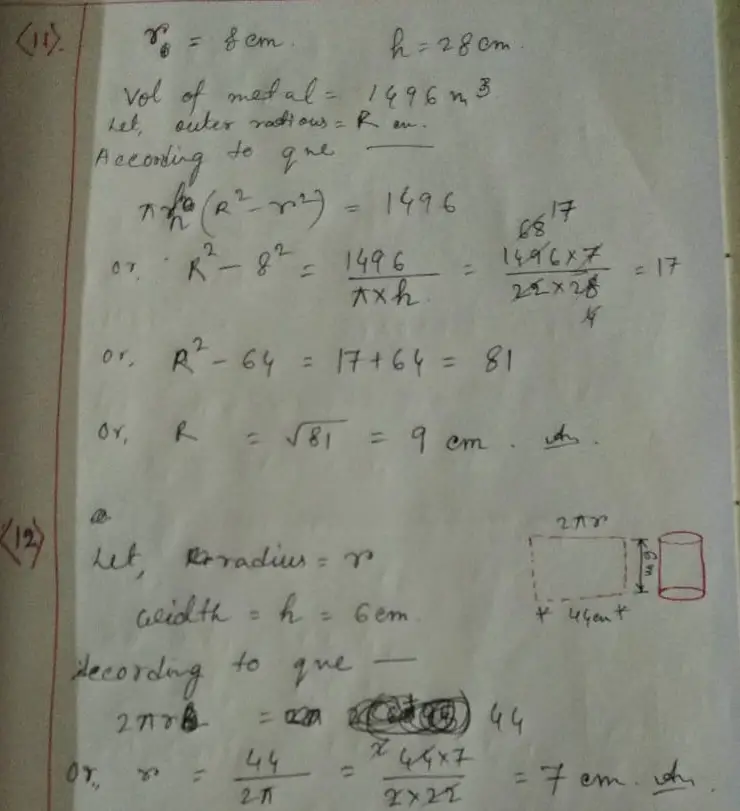 <11>. r = 8 cm. h = 28 cm.
Vol of metal = 1496 m³
Let, outer radious = R cm.
According to que —
πh (R² - r²) = 1496
or, R² - 8² = 1496 / π×h = 1496×7 / 22×28 = 17
68 17
4
or, R² - 64 = 17 + 64 = 81
Or, R = √81 = 9 cm. Ans.
<12>
2πr
Let, radius = r
6m
width = h = 6cm.
44cm
According to que —
2πr = 44
Or, r = 44 / 2π = 44×7 / 2×22 = 7 cm. Ans.